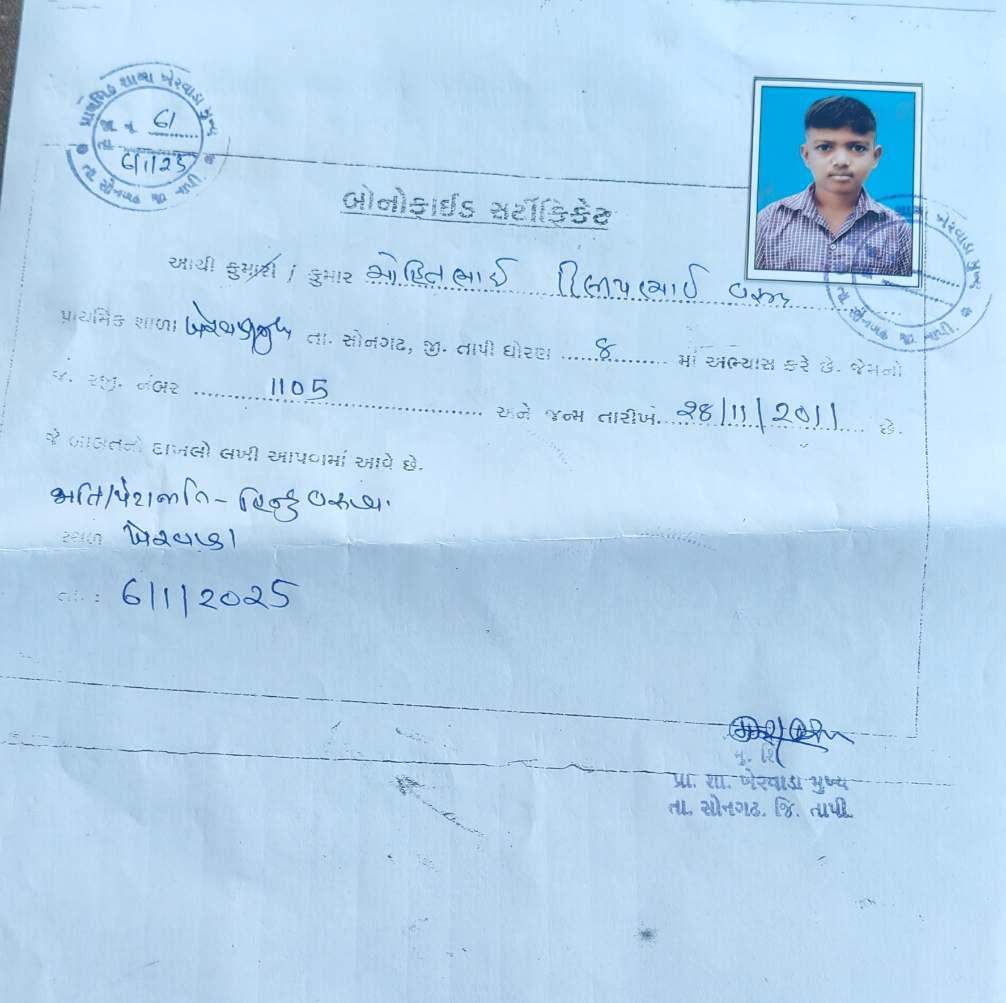 પ્રાથમિક શાળા ખેરવાડા મુખ્ય
જા નં 61
તા 6/1/25
તા. સોનગઢ જી તાપી
બોનોફાઈડ સર્ટીફિકેટ
આથી કુમારી / કુમાર મોહિતભાઈ દિલીપભાઈ વસાવા
પ્રાથમિક શાળા ખેરવાડા મુખ્ય તા. સોનગઢ, જી. તાપી ધોરણ 8 માં અભ્યાસ કરે છે. જેમનો
જ. રજી. નંબર 1105 અને જન્મ તારીખ. 28/11/2011 છે.
જે બાબતનો દાખલો લખી આપવામાં આવે છે.
જાતિ/પેટાજાતિ - હિન્દુ વસાવા.
સ્થળ ખેરવાડા
તા. : 6/1/2025
મુ. શિ
પ્રા. શા. ખેરવાડા મુખ્ય
તા. સોનગઢ. જિ. તાપી.